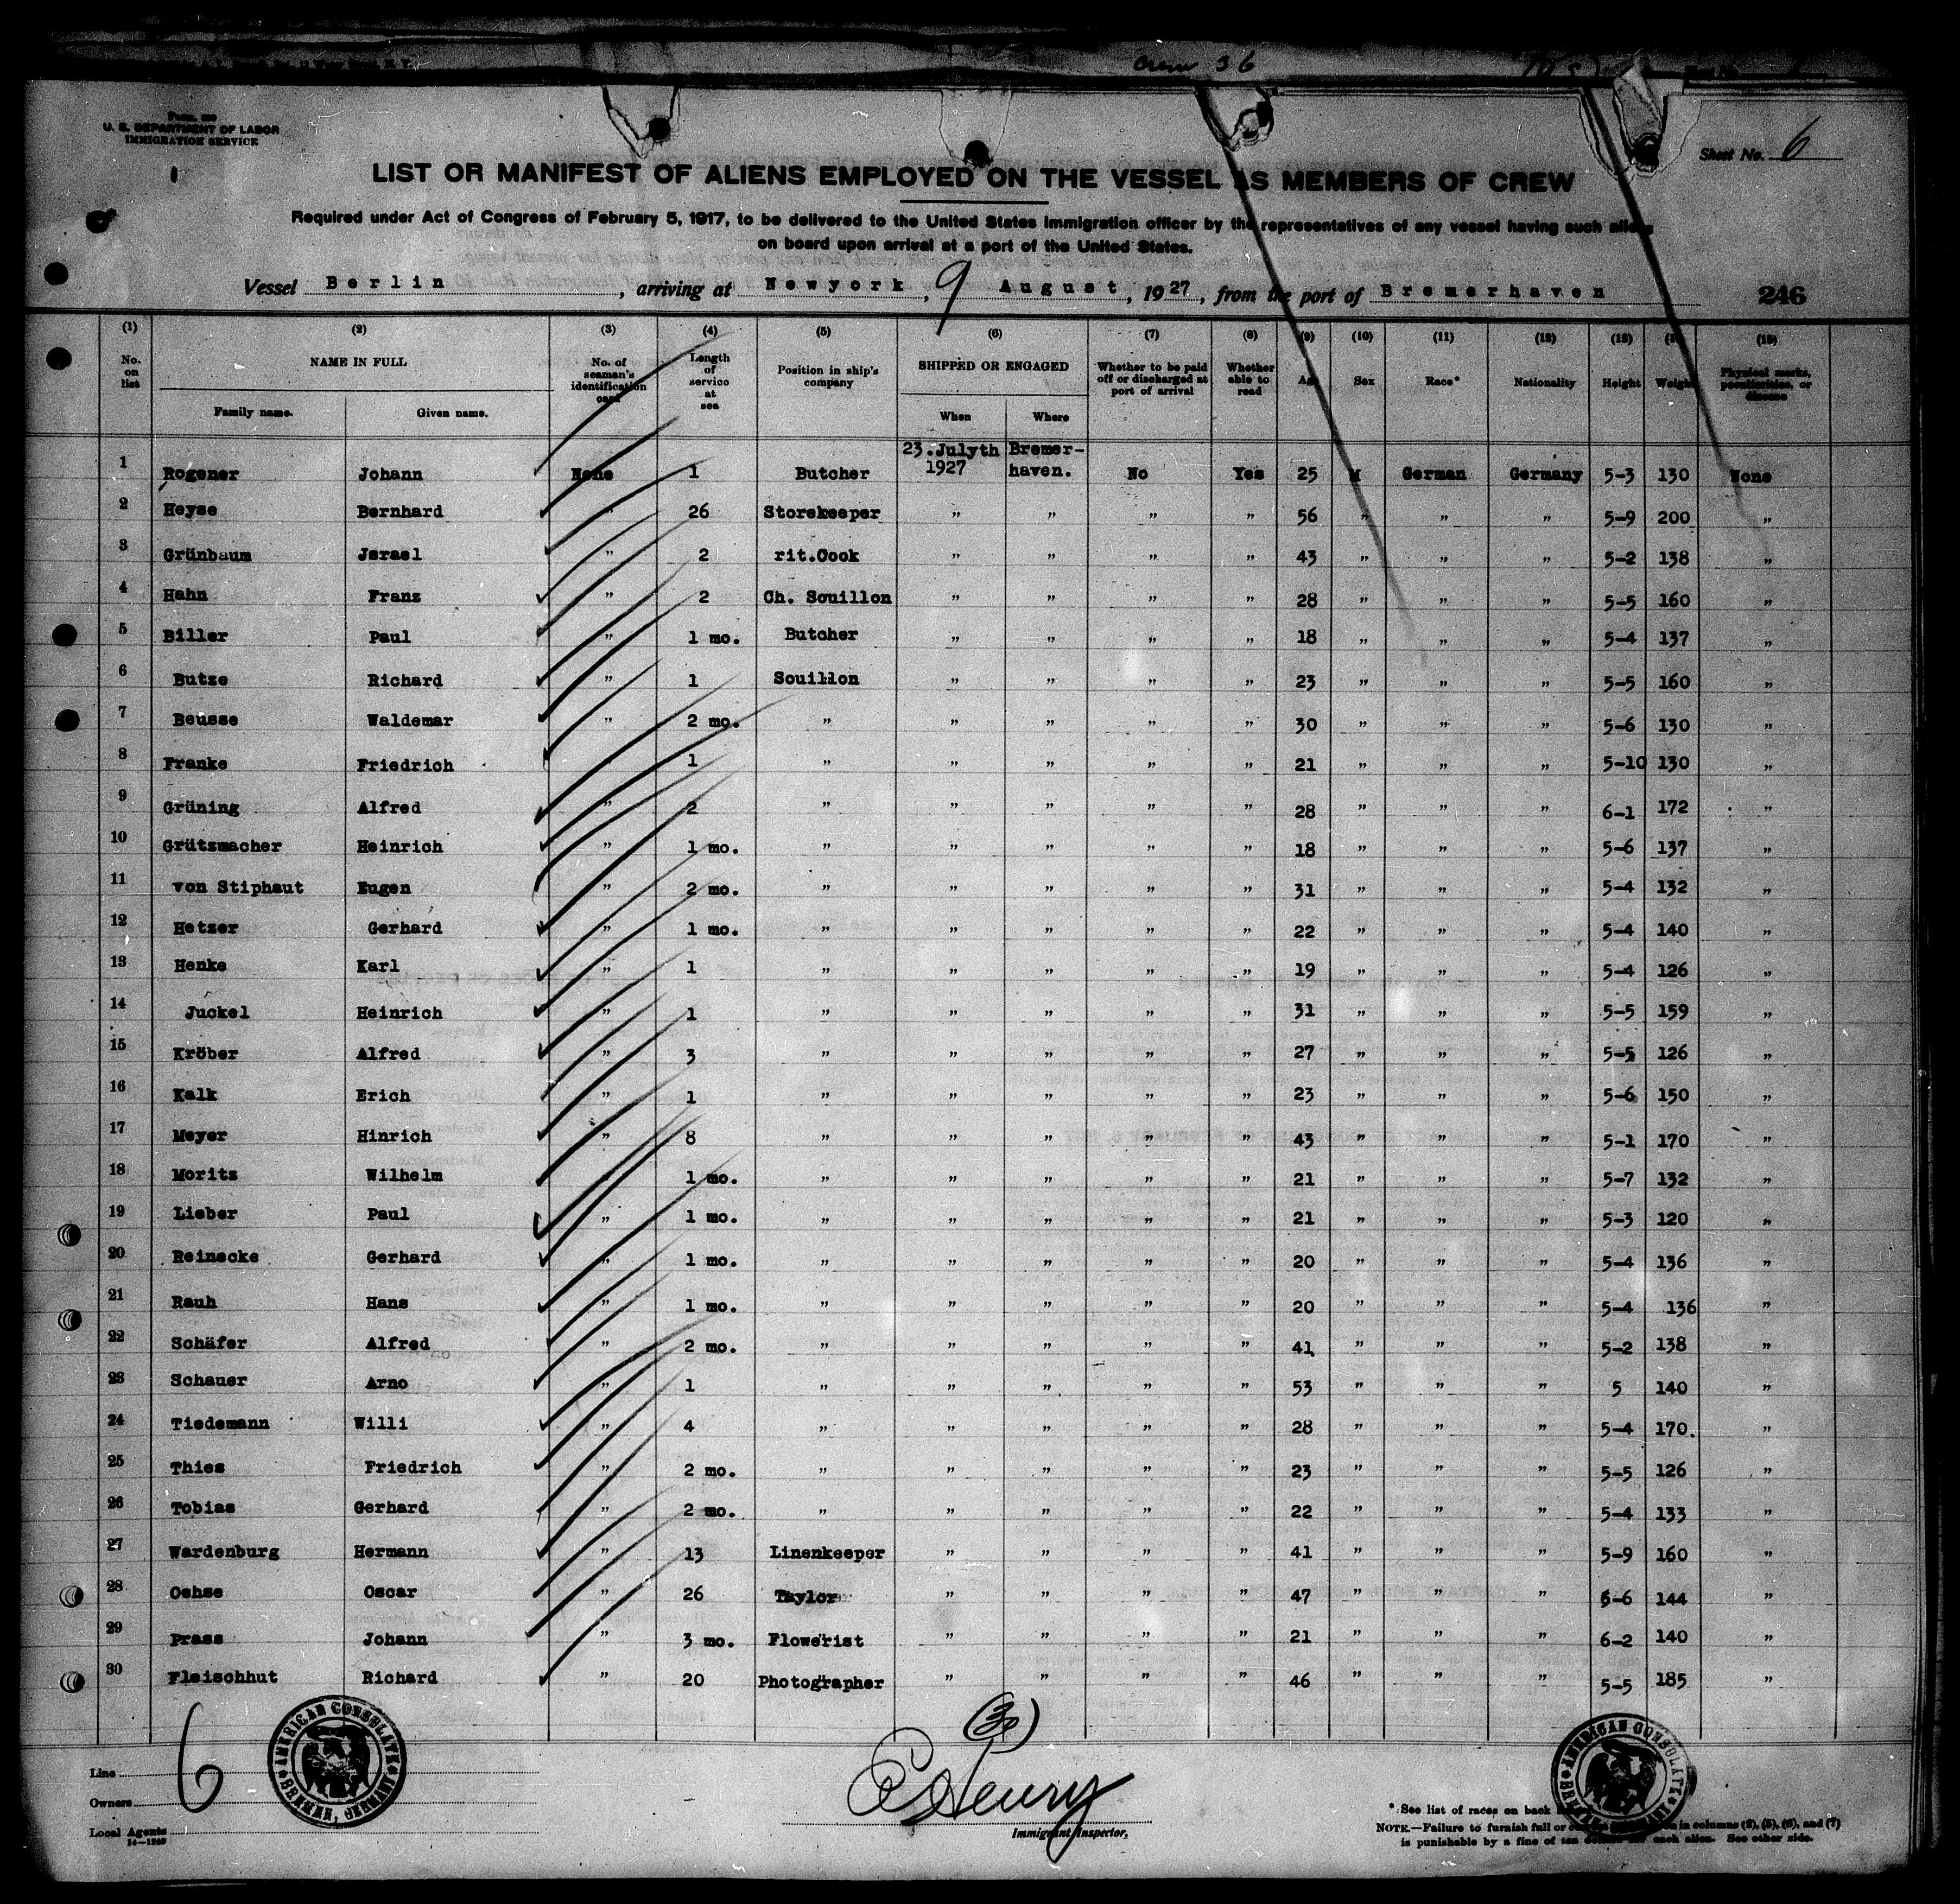 Crew 36
U. S. DEPARTMENT OF LABOR
IMMIGRATION SERVICE
Sheet No. 6
LIST OR MANIFEST OF ALIENS EMPLOYED ON THE VESSEL AS MEMBERS OF CREW
Required under Act of Congress of February 5, 1917, to be delivered to the United States immigration officer by the representatives of any vessel having such aliens
on board upon arrival at a port of the United States.
Vessel Berlin, arriving at Newyork, 9 August, 1927, from the port of Bremerhaven 246
(1) (2) (3) (4) (5) (6) (7) (8) (9) (10) (11) (12) (13) (14) (15)
No. on list NAME IN FULL Family name. Given name. No. of seaman's identification card Length of service at sea Position in ship's company SHIPPED OR ENGAGED When Where Whether to be paid off or discharged at port of arrival Whether able to read Age Sex Race* Nationality Height Weight Physical marks, peculiarities, or disease
1 Rogener Johann None 1 Butcher 23.Julyth 1927 Bremer-haven. No Yes 25 M German Germany 5-3 130 None
2 Heyse Bernhard " 26 Storekeeper " " " " 56 " " " 5-9 200 "
3 Grünbaum Jsrael " 2 rit.Cook " " " " 43 " " " 5-2 138 "
4 Hahn Franz " 2 Ch. Souillon " " " " 28 " " " 5-5 160 "
5 Biller Paul " 1 mo. Butcher " " " " 18 " " " 5-4 137 "
6 Butze Richard " 1 Souillon " " " " 23 " " " 5-5 160 "
7 Beusse Waldemar " 2 mo. " " " " " 30 " " " 5-6 130 "
8 Franke Friedrich " 1 " " " " " 21 " " " 5-10 130 "
9 Grüning Alfred " 2 " " " " " 28 " " " 6-1 172 "
10 Grützmacher Heinrich " 1 mo. " " " " " 18 " " " 5-6 137 "
11 von Stiphaut Eugen " 2 mo. " " " " " 31 " " " 5-4 132 "
12 Hetzer Gerhard " 1 mo. " " " " " 22 " " " 5-4 140 "
13 Henke Karl " 1 " " " " " 19 " " " 5-4 126 "
14 Juckel Heinrich " 1 " " " " " 31 " " " 5-5 159 "
15 Kröber Alfred " 3 " " " " " 27 " " " 5-5 126 "
16 Kalk Erich " 1 " " " " " 23 " " " 5-6 150 "
17 Meyer Hinrich " 8 " " " " " 43 " " " 5-1 170 "
18 Moritz Wilhelm " 1 mo. " " " " " 21 " " " 5-7 132 "
19 Lieber Paul " 1 mo. " " " " " 21 " " " 5-3 120 "
20 Reinecke Gerhard " 1 mo. " " " " " 20 " " " 5-4 136 "
21 Rauh Hans " 1 mo. " " " " " 20 " " " 5-4 136 "
22 Schäfer Alfred " 2 mo. " " " " " 41 " " " 5-2 138 "
23 Schauer Arno " 1 " " " " " 53 " " " 5 140 "
24 Tiedemann Willi " 4 " " " " " 28 " " " 5-4 170. "
25 Thies Friedrich " 2 mo. " " " " " 23 " " " 5-5 126 "
26 Tobias Gerhard " 2 mo. " " " " " 22 " " " 5-4 133 "
27 Wardenburg Hermann " 13 Linenkeeper " " " " 41 " " " 5-9 160 "
28 Oehse Oscar " 26 Taylor " " " " 47 " " " 6-6 144 "
29 Prass Johann " 3 mo. Flowerist " " " " 21 " " " 6-2 140 "
30 Fleischhut Richard " 20 Photographer " " " " 46 " " " 5-5 185 "
(30)
6
AMERICAN CONSULATE BREMEN, GERMANY
Line
Owners
Local Agents
14—1240
Henry
Immigrant Inspector,
* See list of races on back
NOTE.—Failure to furnish full or in columns (2), (5), (6), and (7)
is punishable by a fine of ten each alien. See other side.
AMERICAN CONSULATE